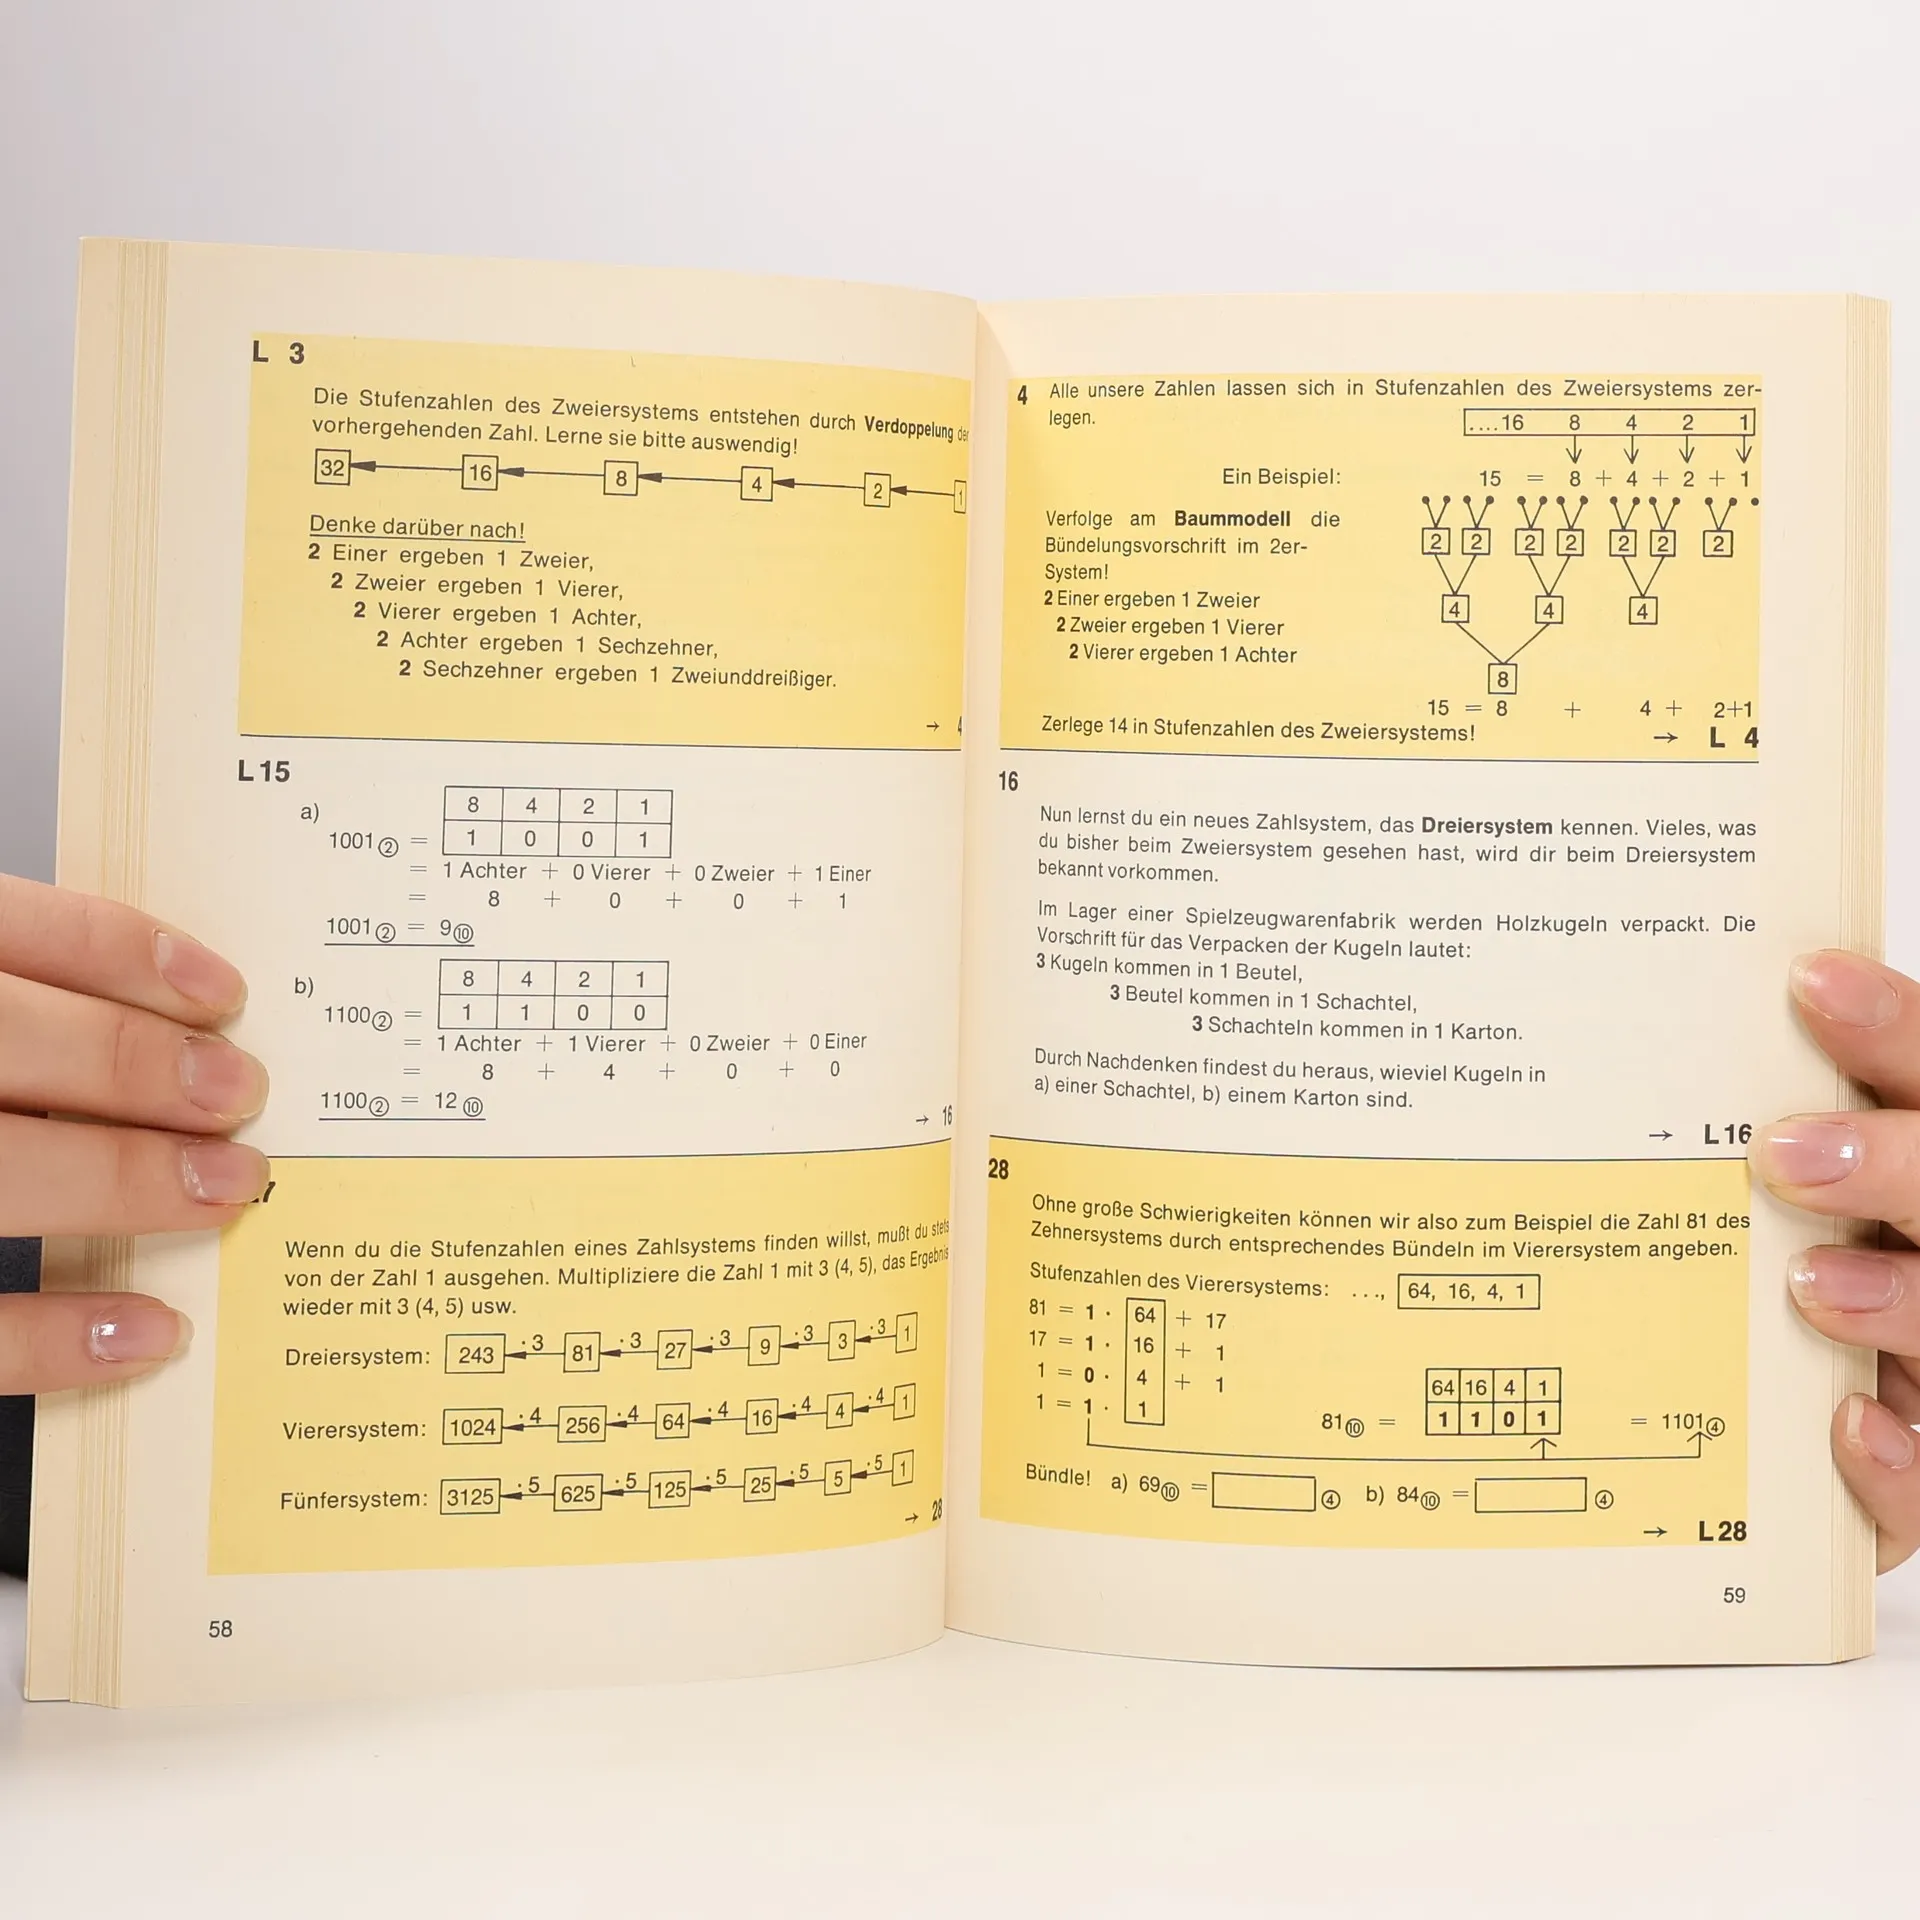 L 3
Die Stufenzahlen des Zweiersystems entstehen durch Verdoppelung der
vorhergehenden Zahl. Lerne sie bitte auswendig!
32 16 8 4 2 1
Denke darüber nach!
2 Einer ergeben 1 Zweier,
2 Zweier ergeben 1 Vierer,
2 Vierer ergeben 1 Achter,
2 Achter ergeben 1 Sechzehner,
2 Sechzehner ergeben 1 Zweiunddreißiger.
→ 4
L 15
a)
8 4 2 1
1001② = 1 0 0 1
= 1 Achter + 0 Vierer + 0 Zweier + 1 Einer
= 8 + 0 + 0 + 1
1001② = 9⑩
b)
8 4 2 1
1100② = 1 1 0 0
= 1 Achter + 1 Vierer + 0 Zweier + 0 Einer
= 8 + 4 + 0 + 0
1100② = 12⑩
→ 16
7
Wenn du die Stufenzahlen eines Zahlsystems finden willst, mußt du stets
von der Zahl 1 ausgehen. Multipliziere die Zahl 1 mit 3 (4, 5), das Ergebnis
wieder mit 3 (4, 5) usw.
Dreiersystem: 243 ·3 81 ·3 27 ·3 9 ·3 3 ·3 1
Vierersystem: 1024 ·4 256 ·4 64 ·4 16 ·4 4 ·4 1
Fünfersystem: 3125 ·5 625 ·5 125 ·5 25 ·5 5 ·5 1
→ 28
58
4 Alle unsere Zahlen lassen sich in Stufenzahlen des Zweiersystems zer-
legen.
....16 8 4 2 1
Ein Beispiel: 15 = 8 + 4 + 2 + 1
Verfolge am Baummodell die
Bündelungsvorschrift im 2er-
System!
2 Einer ergeben 1 Zweier
2 Zweier ergeben 1 Vierer
2 Vierer ergeben 1 Achter
2 2 2 2 2 2 2
4 4 4
8
15 = 8 + 4 + 2+1
Zerlege 14 in Stufenzahlen des Zweiersystems!
→ L 4
16
Nun lernst du ein neues Zahlsystem, das Dreiersystem kennen. Vieles, was
du bisher beim Zweiersystem gesehen hast, wird dir beim Dreiersystem
bekannt vorkommen.
Im Lager einer Spielzeugwarenfabrik werden Holzkugeln verpackt. Die
Vorschrift für das Verpacken der Kugeln lautet:
3 Kugeln kommen in 1 Beutel,
3 Beutel kommen in 1 Schachtel,
3 Schachteln kommen in 1 Karton.
Durch Nachdenken findest du heraus, wieviel Kugeln in
a) einer Schachtel, b) einem Karton sind.
→ L 16
28
Ohne große Schwierigkeiten können wir also zum Beispiel die Zahl 81 des
Zehnersystems durch entsprechendes Bündeln im Vierersystem angeben.
Stufenzahlen des Vierersystems: ..., 64, 16, 4, 1
81 = 1 · 64 + 17
17 = 1 · 16 + 1
1 = 0 · 4 + 1
1 = 1 · 1
64 16 4 1
81⑩ = 1 1 0 1 = 1101④
Bündle! a) 69⑩ = ④ b) 84⑩ = ④
→ L 28
59